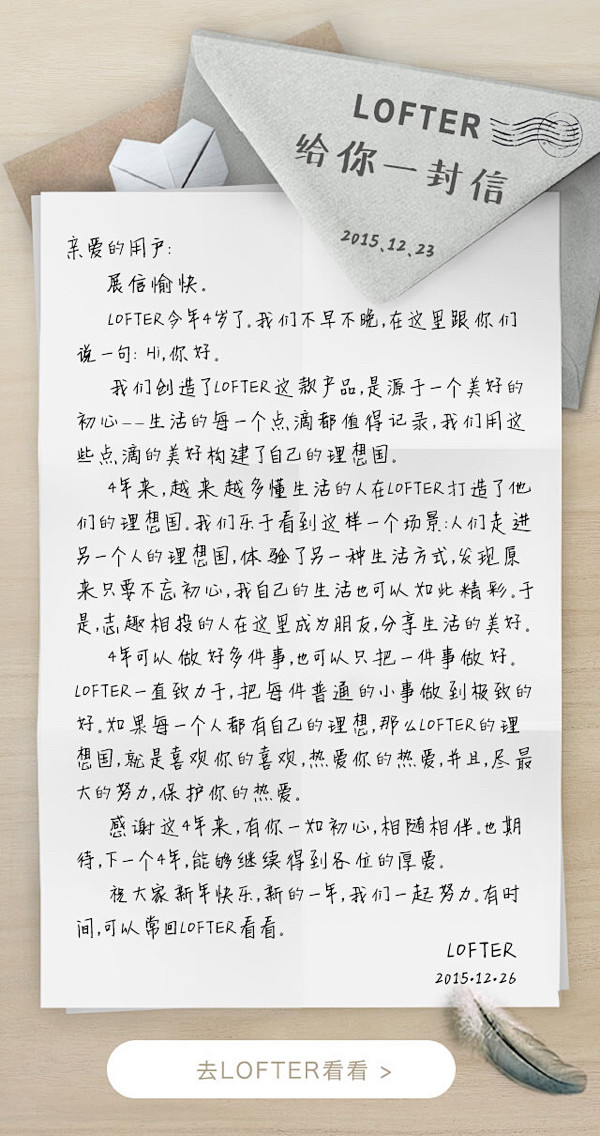 LOFTER
给你一封信
2015.12.23
亲爱的用户:
展信愉快。
LOFTER今年4岁了。我们不早不晚,在这里跟你们
说一句: Hi,你好。
我们创造了LOFTER这款产品,是源于一个美好的
初心——生活的每一个点滴都值得记录,我们用这
些点滴的美好构建了自己的理想国。
4年来,越来越多懂生活的人在LOFTER打造了他
们的理想国。我们乐于看到这样一个场景:人们走进
另一个人的理想国,体验了另一种生活方式,发现原
来只要不忘初心,我自己的生活也可以如此精彩。于
是,志趣相投的人在这里成为朋友,分享生活的美好。
4年可以做好多件事,也可以只把一件事做好。
LOFTER一直致力于,把每件普通的小事做到极致的
好。如果每一个人都有自己的理想,那么LOFTER的理
想国,就是喜欢你的喜欢,热爱你的热爱,并且,尽最
大的努力,保护你的热爱。
感谢这4年来,有你一如初心,相随相伴。也期
待,下一个4年,能够继续得到各位的厚爱。
祝大家新年快乐,新的一年,我们一起努力。有时
间,可以常回LOFTER看看。
LOFTER
2015.12.26
去LOFTER看看 >